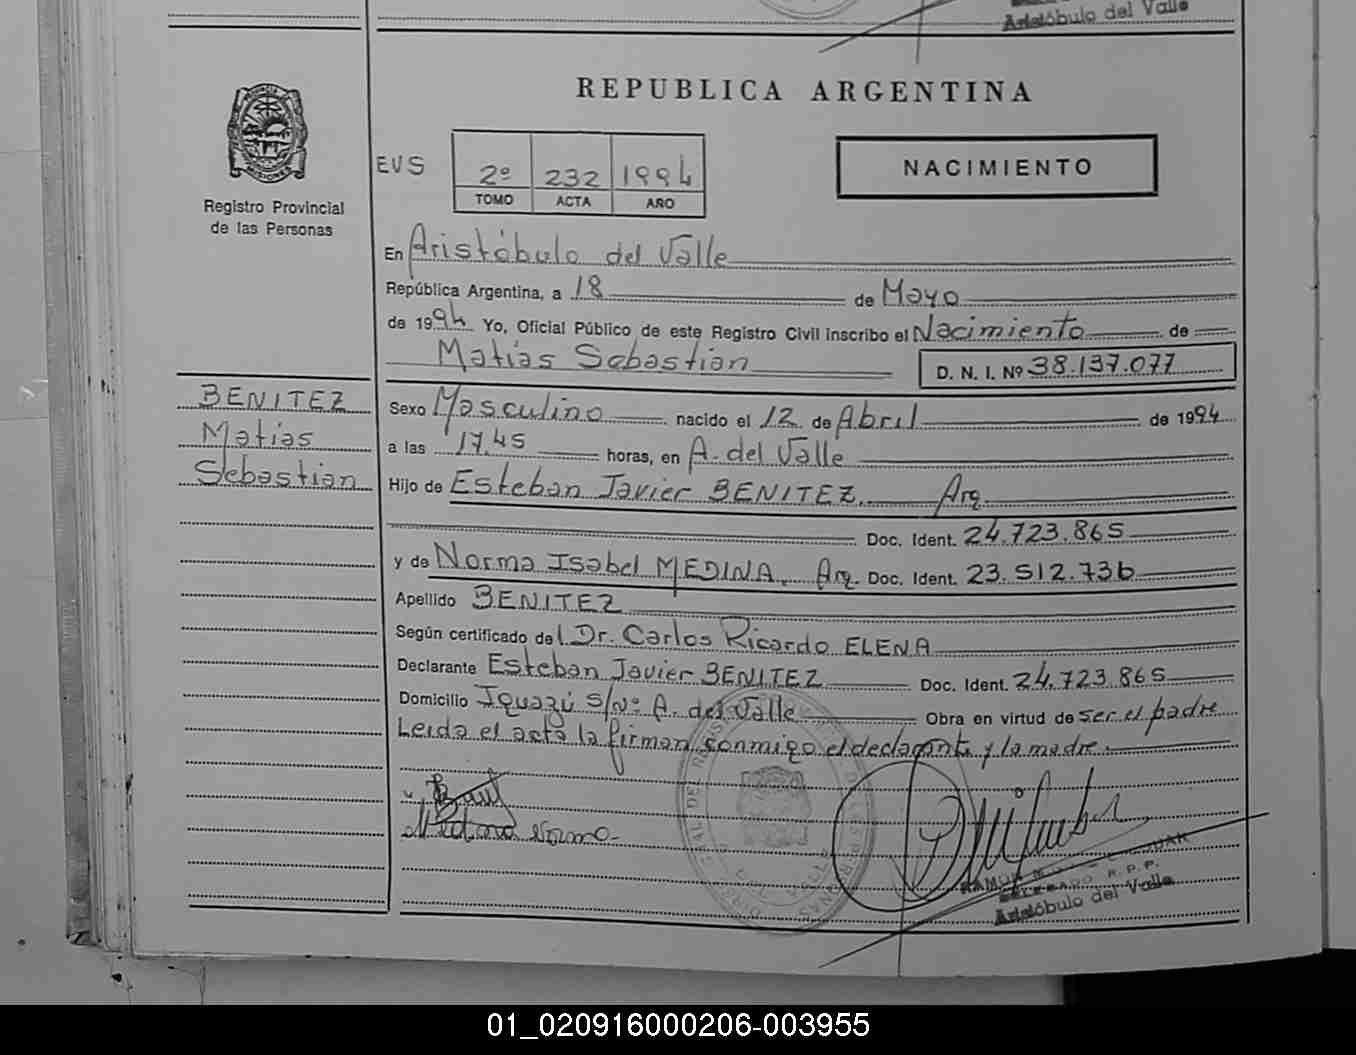 Aristóbulo del Valle
REPUBLICA ARGENTINA
MISIONES
Registro Provincial
de las Personas
EVS
2º 232 1994
TOMO ACTA AÑO
NACIMIENTO
En Aristóbulo del Valle
República Argentina, a 18 de Mayo
de 1994 Yo, Oficial Público de este Registro Civil inscribo el Nacimiento de
Matías Sebastian D. N. I. Nº 38.137.077
BENITEZ
Matias
Sebastian
Sexo Masculino nacido el 12 de Abril de 1994
a las 17,45 horas, en A. del Valle
Hijo de Esteban Javier BENITEZ. Arg.
Doc. Ident. 24.723.865
y de Norma Isabel MEDINA. Arg. Doc. Ident. 23.512.736
Apellido BENITEZ
Según certificado del Dr. Carlos Ricardo ELENA
Declarante Esteban Javier BENITEZ Doc. Ident. 24.723.865
Domicilio Iguazú S/Nº A. del Valle Obra en virtud de ser el padre
Leída el acta la firman conmigo el declarante y la madre.
Medina Norma
RAMON
R. P. P.
Aristóbulo del Valle
01_020916000206-003955